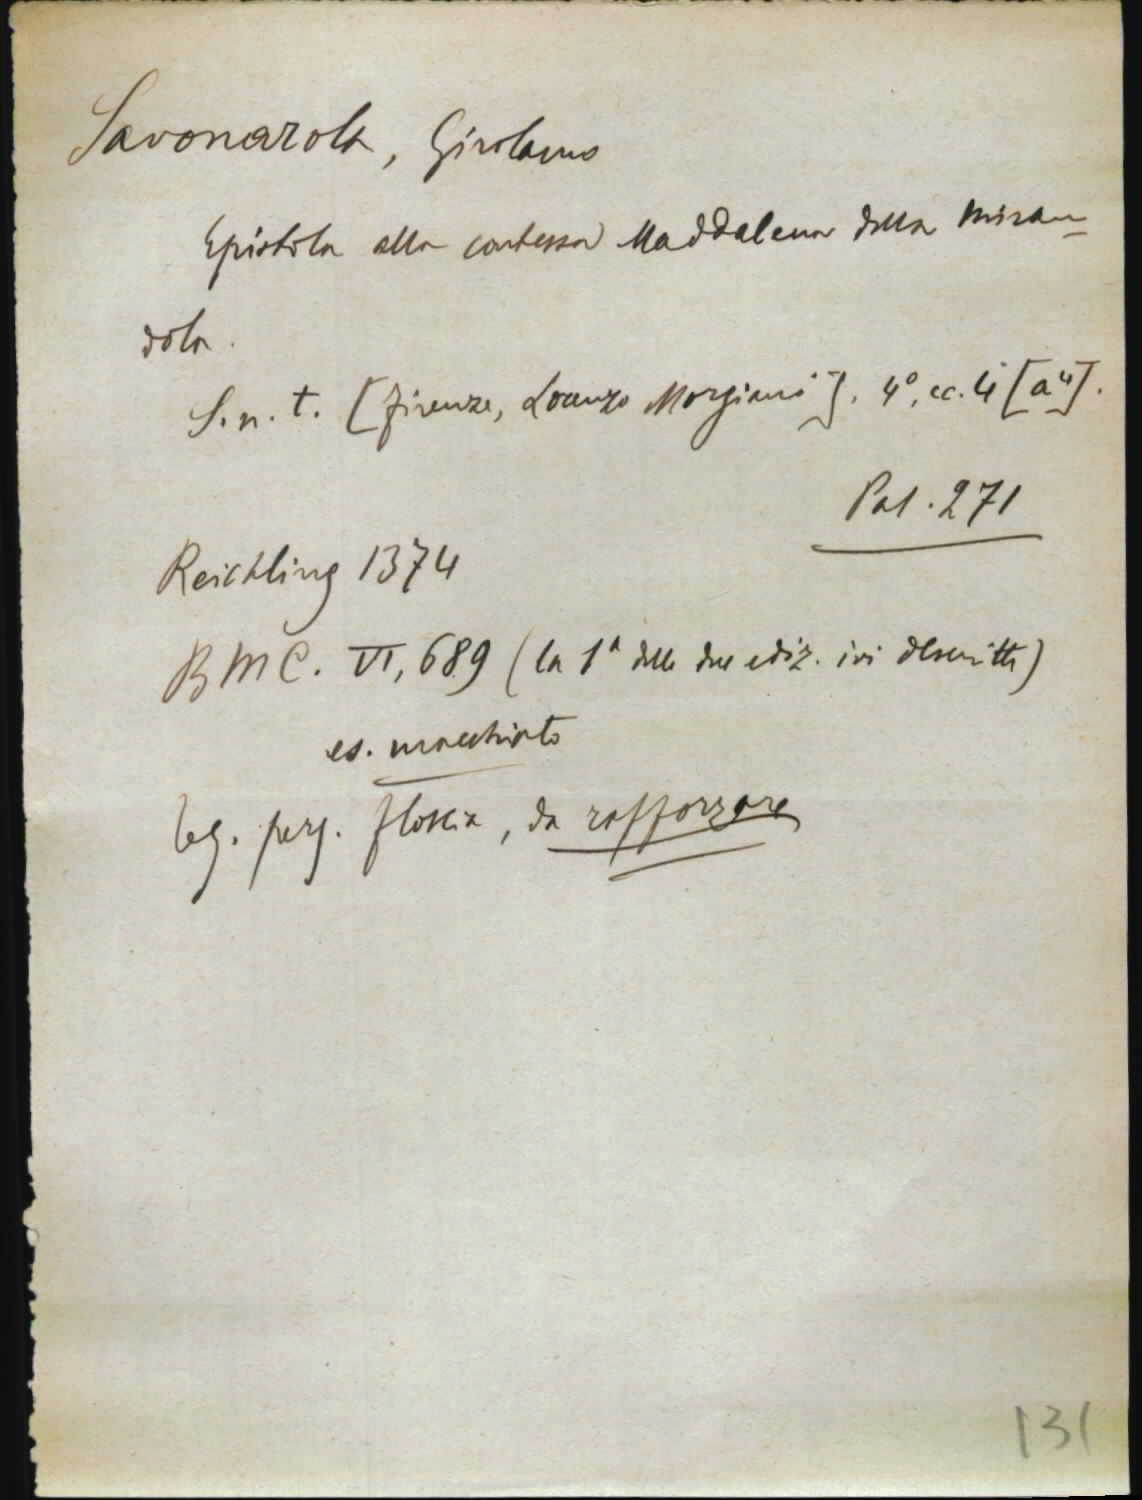 Savonarola, Girolamo
Epistola alla contessa Maddalena della Miran-
dola.
S. n. t. [Firenze, Lorenzo Morgiani]. 4°, cc. 4 [a⁴].
Pal. 271
Reichling 1374
BMC. VI, 689 (la 1ª delle due ediz. ivi descritte)
es. macchiato
leg. perg. floscia, da rafforzare
131